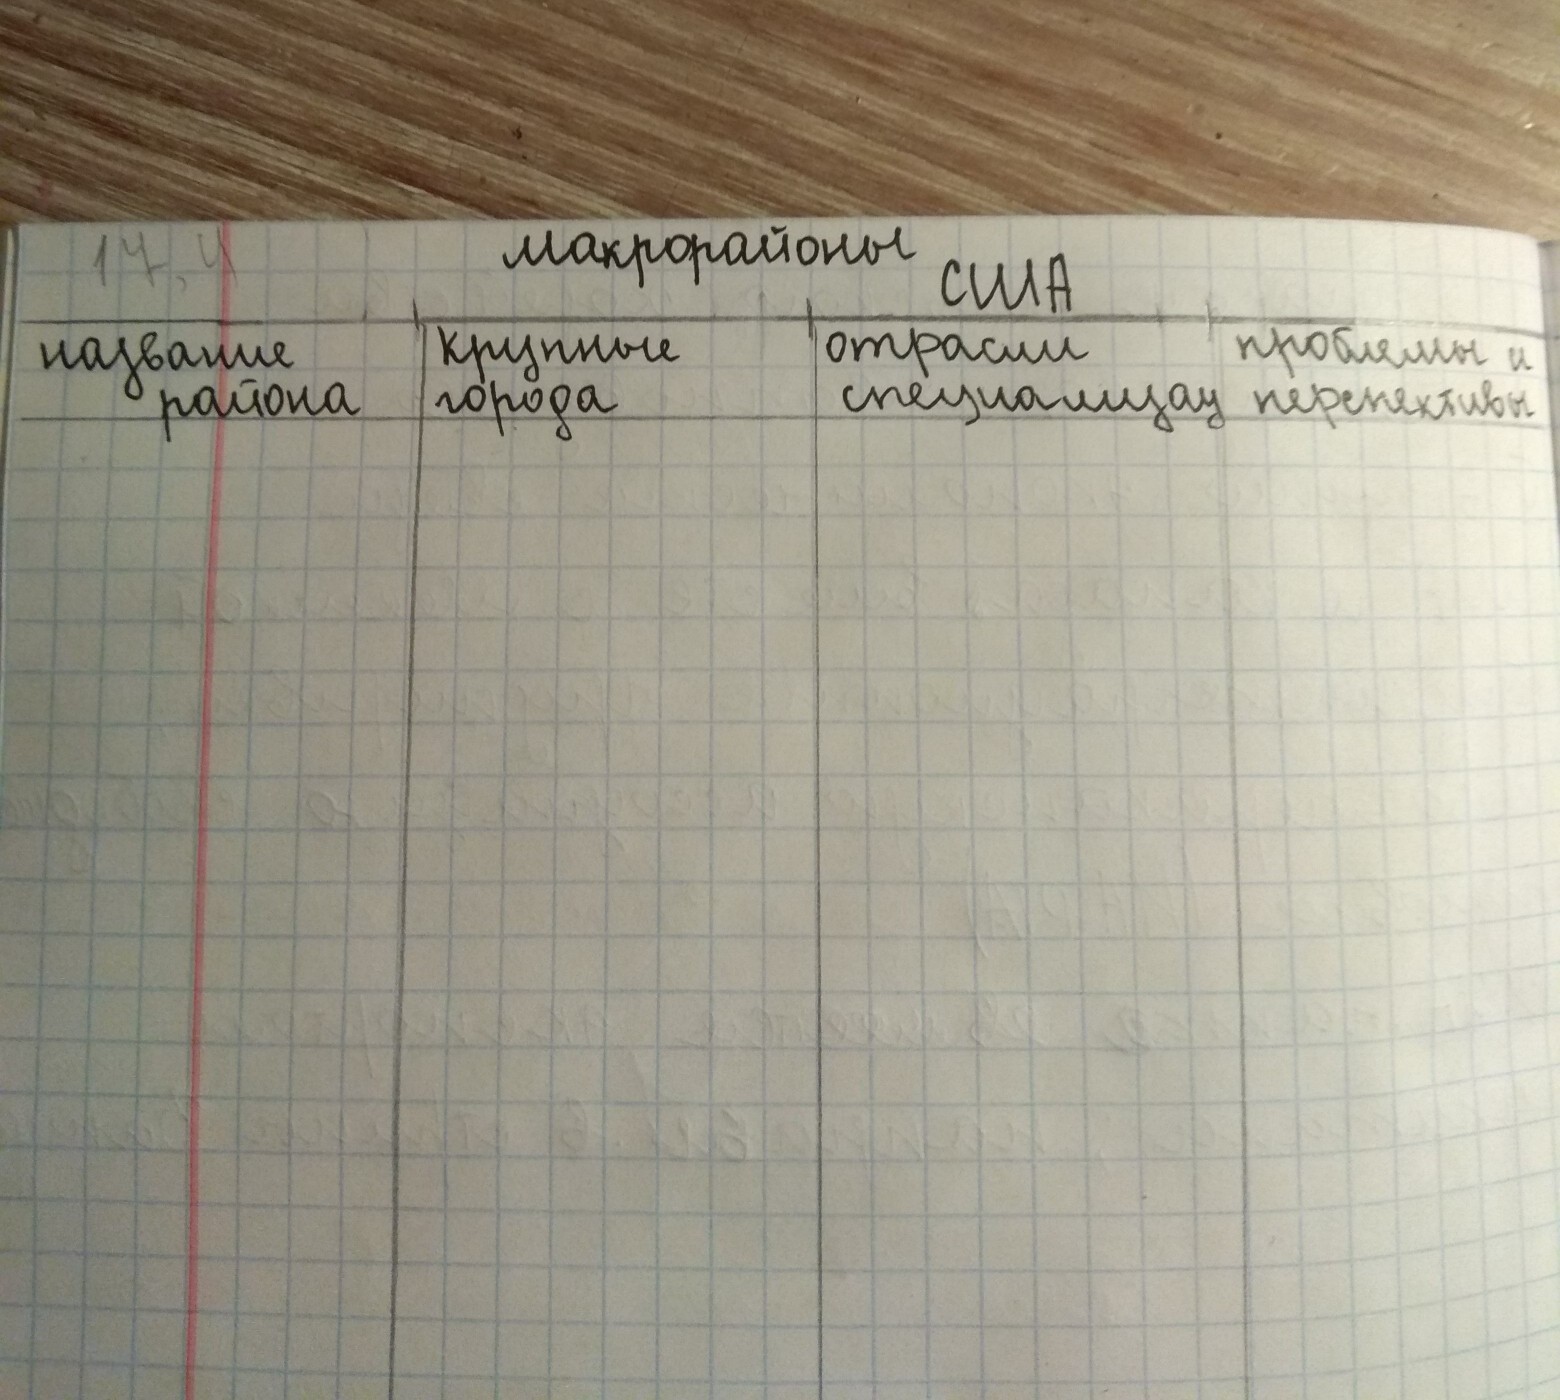 17,4
макрорайоны
США
название
района
крупные
города
отрасли
специализац
проблемы и
перспективы